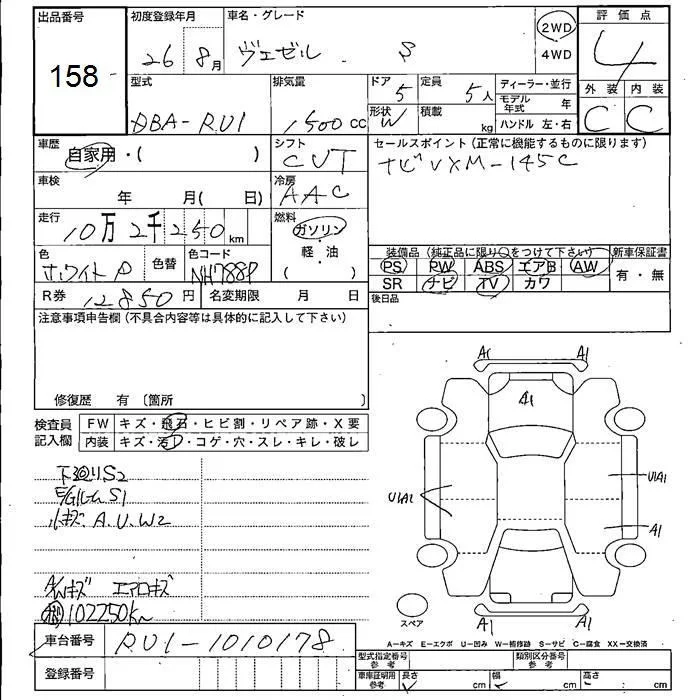 出品番号 初度登録年月 車名・グレード 2WD 評価点
158 26 8月 ヴェゼル S 4WD 4
型式 排気量 ドア 定員 ディーラー・並行 外装 内装
DBA-RU1 1500cc 5 5人 モデル年式 年 C C
形状 W 積載 kg ハンドル 左・右
車歴 シフト セールスポイント(正常に機能するものに限ります)
自家用・( ) CVT ナビVXM-145C
車検 冷房
年 月( 日) AAC
走行 燃料
10万2千250km ガソリン
軽・油
( )
色 色替 色コード 装備品(純正品に限り○をつけて下さい) 新車保証書
ホワイトP NH788P PS PW ABS エアB AW 有・無
SR ナビ TV カワ
R券 12850円 名変期限 月 日 後日品
注意事項申告欄(不具合内容等は具体的に記入して下さい)
A1 A1
A1
修復歴 有〔箇所 〕
検査員記入欄 FW キズ・飛石・ヒビ割・リペア跡・X要
内装 キズ・汚れ・コゲ・穴・スレ・キレ・破レ
下廻りS2
E/GルームS1
小キズ、A.U.W2
U1A1 U1A1
A1
A/Wキズ エアロキズ
102250Km
スペア A1 A1
A-キズ E-エクボ U-凹み W-補修跡 S-サビ C-腐食 XX-交換済
車台番号 RU1-1010178
型式指定番号 参考 類別区分番号 参考
登録番号 車庫証明用 参考 長さ cm 幅 cm 高さ cm